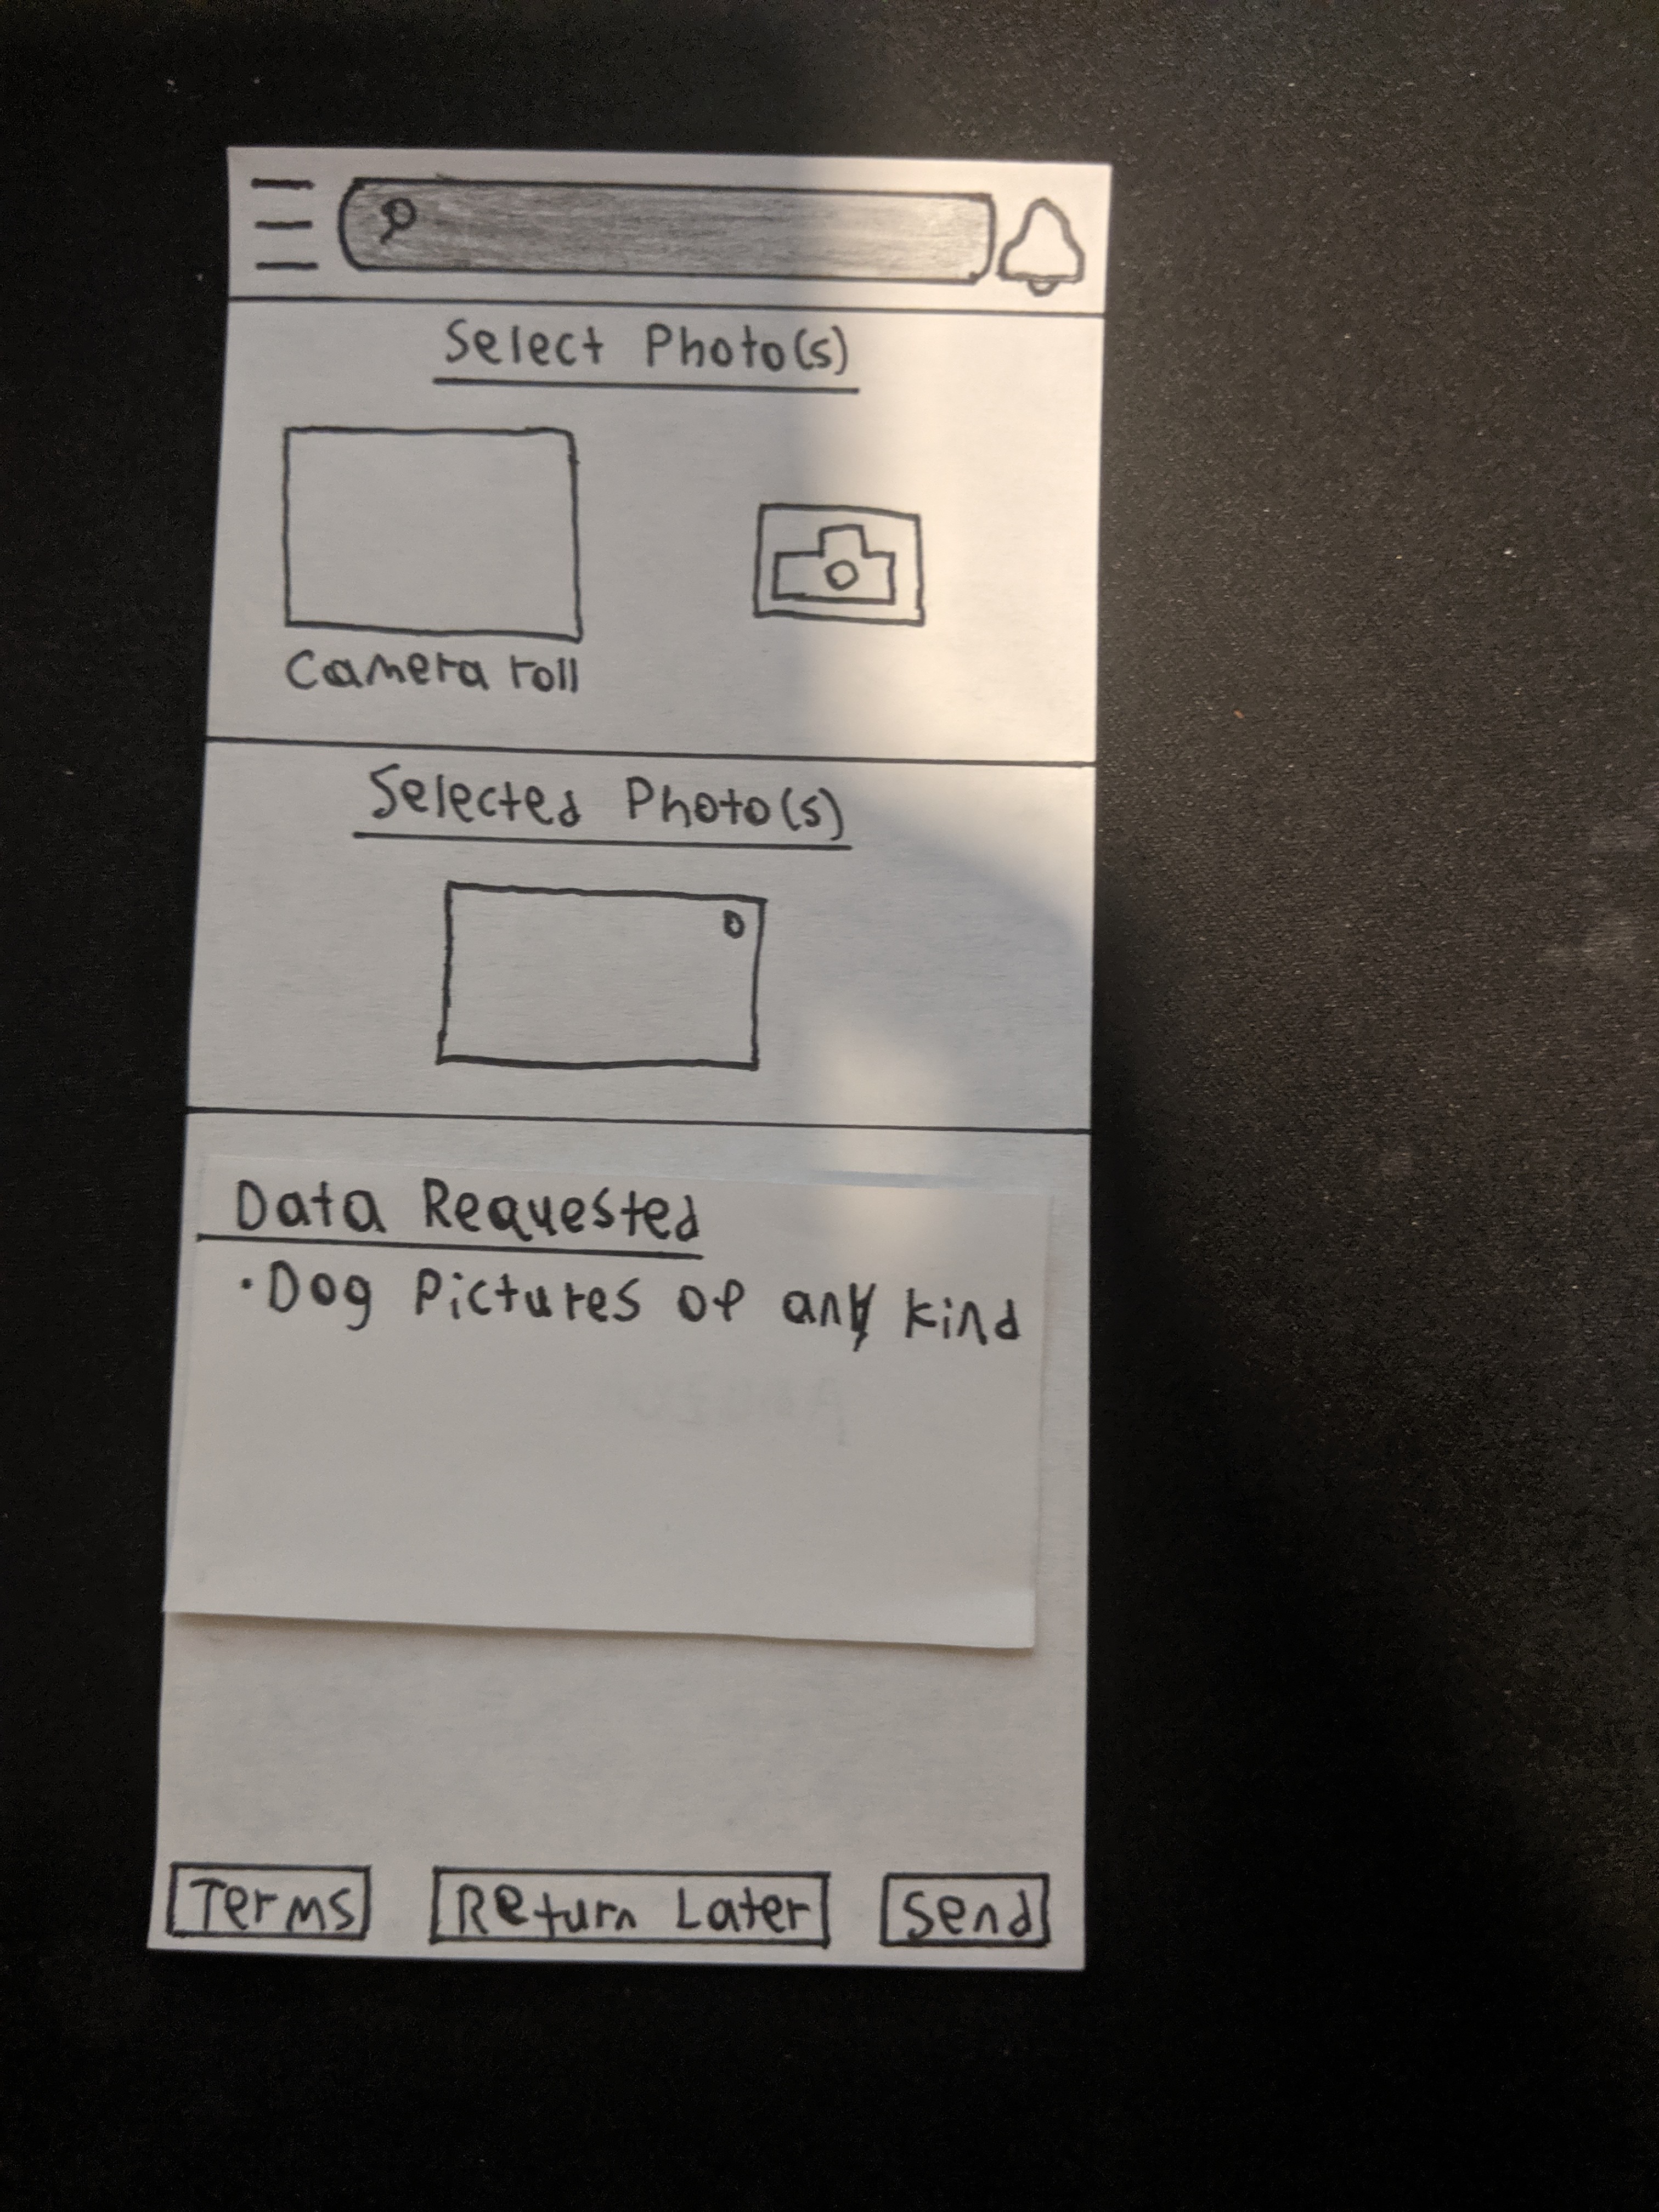 Select Photo(s)
Camera roll
Selected Photo(s)
Data Requested
• Dog Pictures of any kind
Terms
Return Later
Send